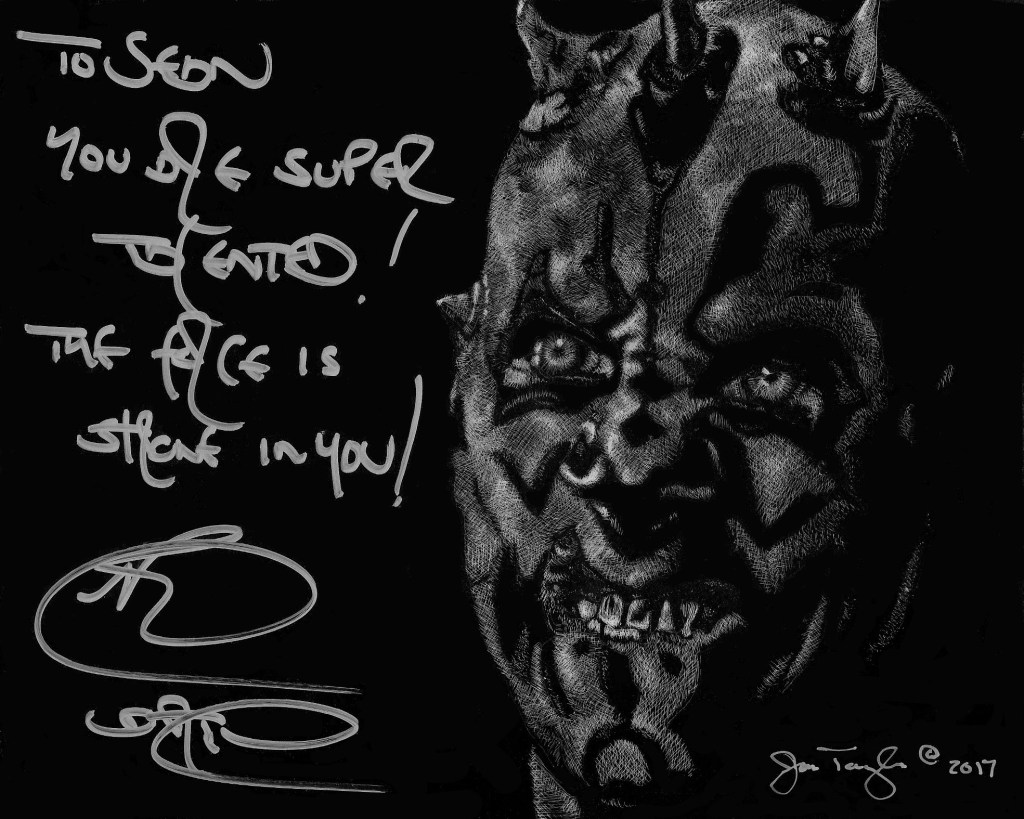 TO SEAN
YOU ARE SUPER
TALENTED!
THE FORCE IS
STRONG IN YOU!
Taylor © 2017